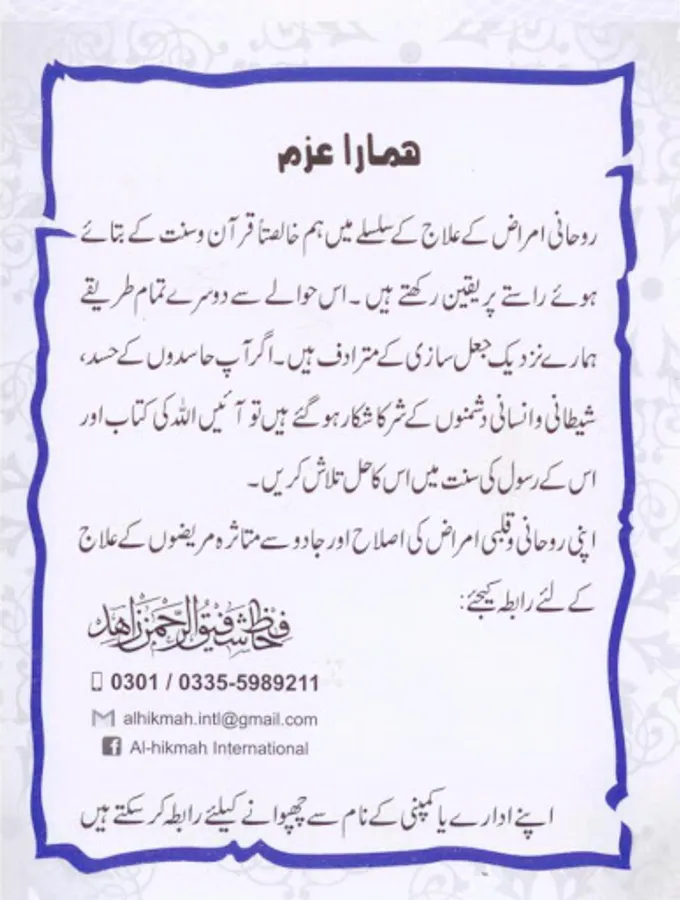 ھمارا عزم
روحانی امراض کے علاج کے سلسلے میں ہم خالصتاً قرآن و سنت کے بتائے
ہوئے راستے پر یقین رکھتے ہیں ۔ اس حوالے سے دوسرے تمام طریقے
ہمارے نزدیک جعل سازی کے مترادف ہیں۔ اگر آپ حاسدوں کے حسد،
شیطانی و انسانی دشمنوں کے شر کا شکار ہو گئے ہیں تو آئیں اللہ کی کتاب اور
اس کے رسول کی سنت میں اس کا حل تلاش کریں ۔
اپنی روحانی و قلبی امراض کی اصلاح اور جادو سے متاثرہ مریضوں کے علاج
کے لئے رابطہ کیجئے:
حافظ شفیق الرحمن زاھد
0301 / 0335-5989211
alhikmah.intl@gmail.com
Al-hikmah International
اپنے ادارے یا کمپنی کے نام سے چھپوانے کیلئے رابطہ کر سکتے ہیں